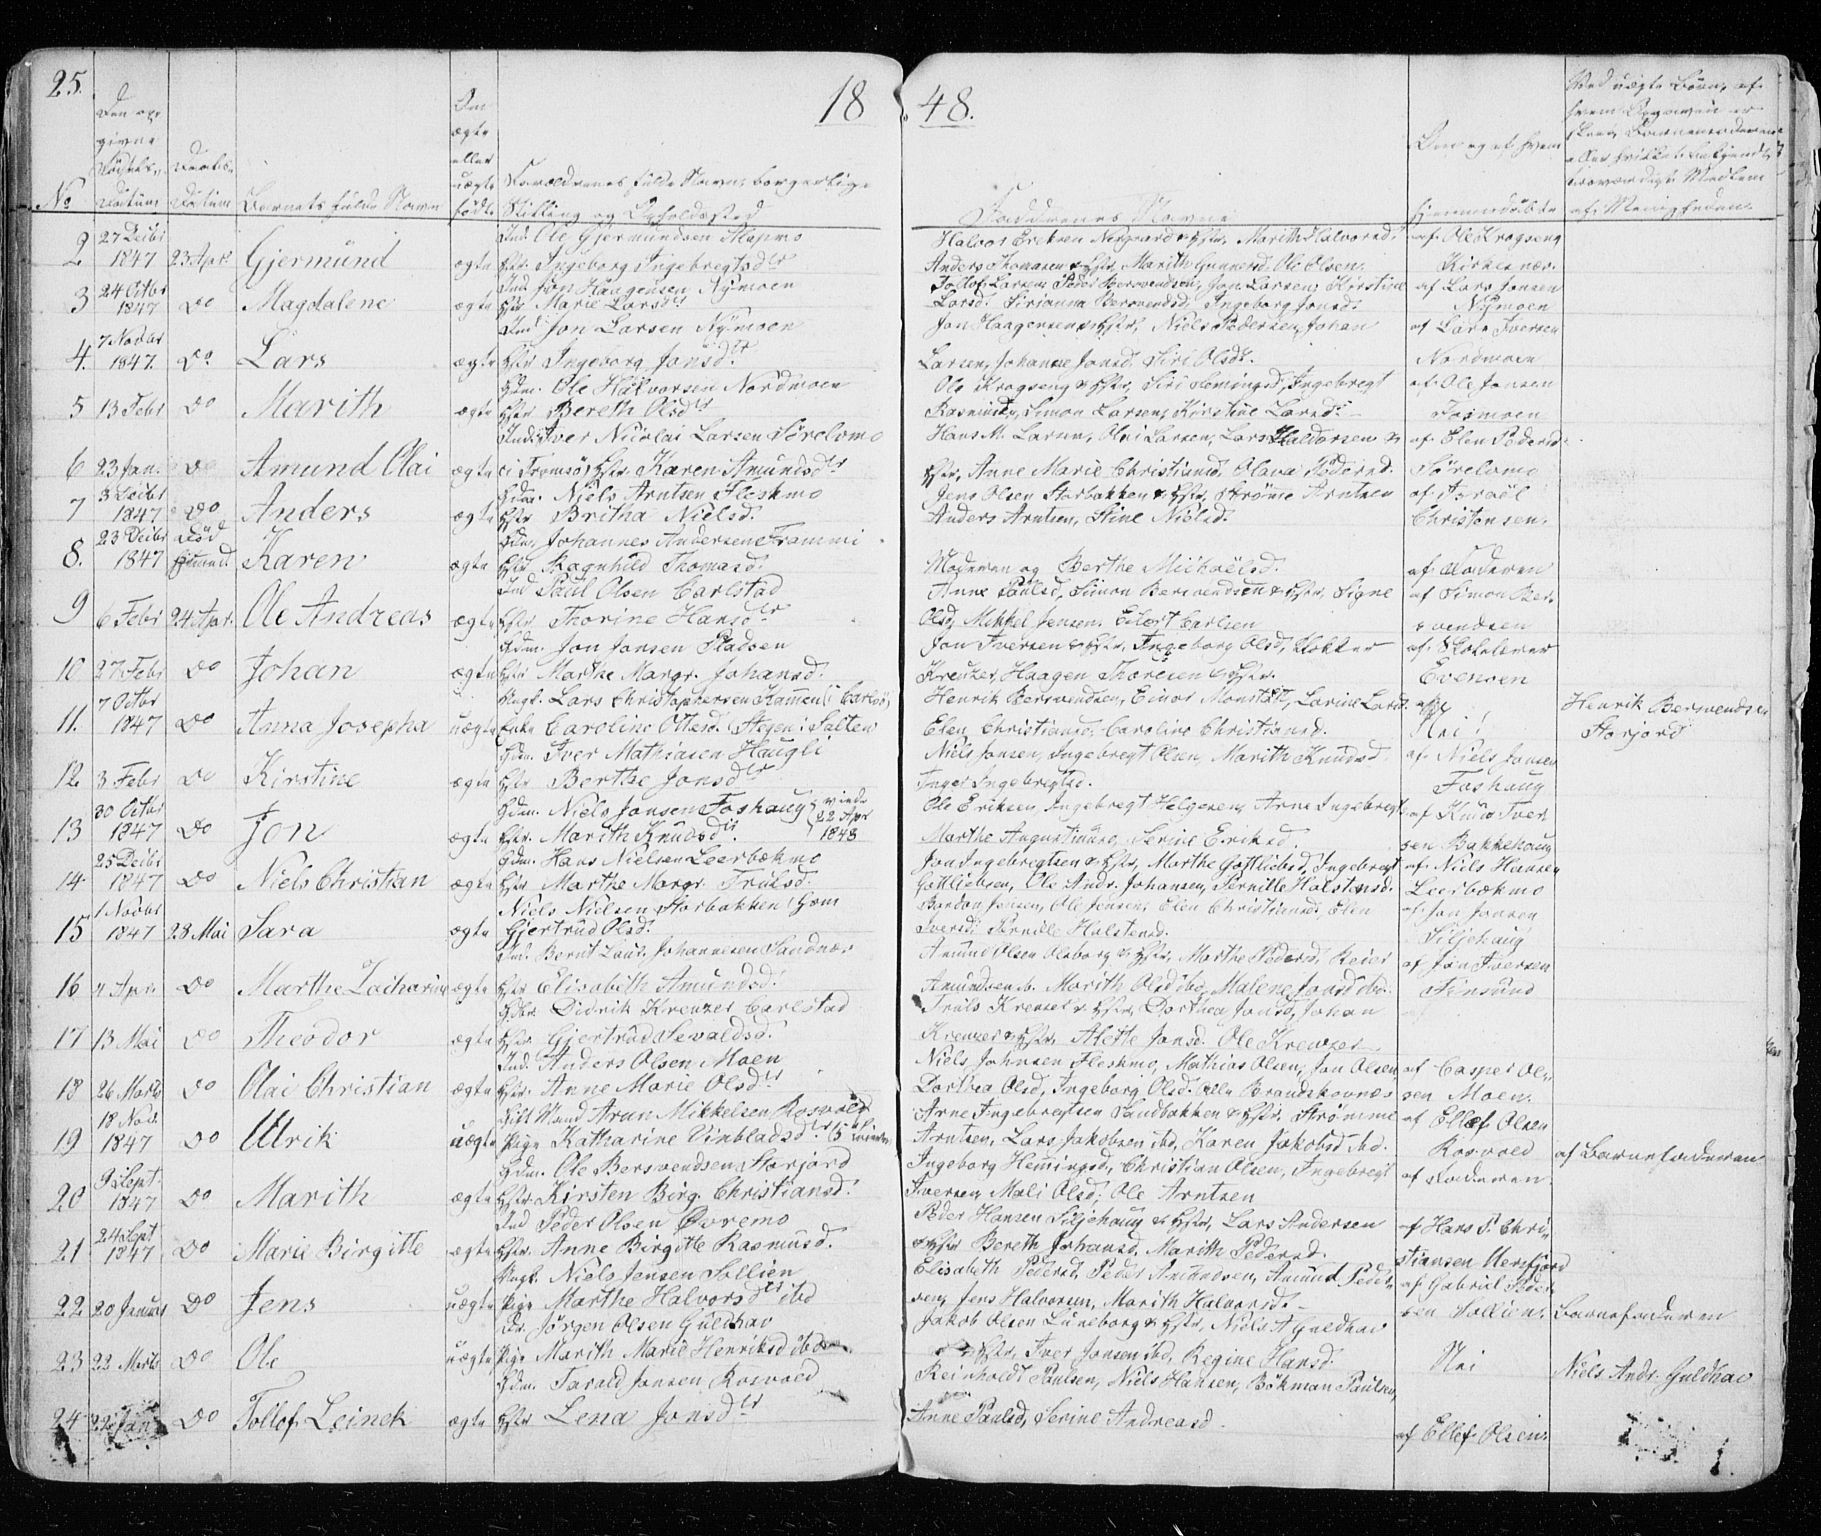 25.
18 48.
No
Den op-
givne
Fødsels-
Datum
Daabs-
Datum
Barnets fulde Navn
Om
ægte
eller
uægte
født
Forældrenes fulde Navn, borgerlige
Stilling og Opholdssted
Faddernes Navne
Om og af hvem
hjemmedøbte
Ved uægte Børn, af
hvem Opgaven er
af Menigheden
2 27 Decbr 1847 23 Apr. Gjermund ægte Ind. Ole Gjermundsen Mapmo
Hstr. Ingeborg Ingebregtsdtr
Halvor Eriksen Nergaard & Hstr, Marith Halvorsd.
Anders Thomasen & Hstr, Marith Gunnersd. Ole Olsen.
af Ole Kragseng
Kirkesnær.
3 24 Octbr 1847 Do Magdalene ægte Ind. Jon Haagensen Nymoen
Hstr Marie Larsdtr
Tollof Larsen, Peder Bersvendsen, Jon Larsen, Kirstine
Larsd. Sirianna Bersvendsd, Ingeborg Jonsd.
af Lars Jonsen
Nymoen
4. 7 Novbr 1847. Do. Lars ægte Ind. Jon Larsen Nymoen
Hstr Ingeborg Jonsdtr
Jon Haagensen & Hstr, Niels Pedersen, Johan
Larsen, Johanne Jonsd. Siri Olsd.
af Lars Iversen
Nordmoen
5 13 Febr Do Marith ægte Gdm. Ole Halvorsen Nordmoen
Hstr Bereth Olsdtr
Ole Kragseng & Hstr, Siri Hemingsd, Ingebregt
Rasmusen, Simon Larsen, Kirstine Larsd.
af Ole Jonsen
Fosmoen
6 23 Jan. Do Amund Olai ægte Ind. Iver Nicolai Larsen Sørelvmo
(i Tromsø) Hstr. Karen Amundsdtr
Hans M. Larsen, Olai Larsen, Lars Haldorsen &
Hstr, Anne Marie Christiansd, Olava Pedersd.
af Elen Pedersd
Sørelvmo
7 3 Decbr 1847 Do Anders ægte Gdm. Niels Arntsen Fleskmo
Hstr Britha Nielsd.
Jens Olsen Storbakken & Hstr, Strømme Arntsen
Anders Arntsen, Stine Nielsd.
af Israël
Christensen.
8. 23 Decbr 1847 Død Karen ægte Gdm. Johannes Andersen Frammi
Hstr Ragnhild Thomasd.
Moderen og Berthe Michaëlsd.
af Faderen
9 6 Febr 24 Apr. Ole Andreas ægte Ind Paul Olsen Carlstad
Hstr Thorine Hansdtr
Anne Paulsd, Simon Bersvendsen & Hstr, Signe
Olsd, Mikkel Jensen. Eilert Carlsen
af Simon Ber-
svendsen
10 27 Febr Do Johan ægte Gdm. Jon Jonsen Stadsen
Hstr Marthe Margr. Johansd.
Jon Iversen & Hstr, Ingeborg Olsd, Klokker
Kreutzer, Haagen Thoresen & Hstr.
af Skolelærer
Evensen
11. 7 Octbr 1847 Do Anna Josepha uægte Ungk. Lars Christophersen Kamen (i Carlsø)
Enke Caroline Ottesd. Stegen i Salten
Henrik Bersvendsen, Einar Monstæt, Larine Larsd
Elen Christiansd, Caroline Christiansd.
Nei!
Henrik Bersvendsen
Storjord
12. 3 Febr Do Kirstine ægte Gdm. Iver Mathiasen Haugli
Hstr Berthe Jonsdtr
Niels Jonsen, Ingebregt Olsen, Marith Knudsd.
Inger Ingebregtsd.
af Niels Jonsen
Foshaug
13 30 Octbr 1847 Do Jon ægte Gdm. Niels Jonsen Foshaug (viede
22 Apr
1848
Hstr. Marith Knudsdtr
Ole Eriksen, Ingebregt Helgesen, Arne Ingebregts
Marthe Augustinusd, Serine Eriksd.
af Knud Iver-
sen Bakkehaug
14. 25 Decbr 1847 Do Niels Christian ægte Gdm. Hans Nielsen Leerbækmo
Hstr Marthe Margr. Trulsd.
Jon Ingebregtsen & Hstr, Marthe Gottliebsd, Ingebregt
Gottliebsen, Ole Andr. Johansen, Pernille Halstensd.
af Niels Hansen
Leerbækmo
15 1 Novbr 1847 28 Mai Sara ægte Niels Nielsen Storbakken, Gdm
Gjertrud Olsd.
Bardon Jensen, Ole Jensen, Elen Christiansd, Elen
Iversd, Pernille Halstensd.
af Jon Jonsen
Siljehaug
16 4 Apr. Do Marthe Zacharine ægte Ind. Bernt Laur. Johannesen Sandnæs
Hstr Elisabeth Amundsd.
Amund Olsen Olsborg & Hstr, Marthe Pedersd, Reier
Amundsen ib. Marith Olsd ibd, Malene Jonsd ibd.
af Jon Iversen
Finsund
17 13 Mai Do Theodor ægte Gdbr. Didrik Kreutzer Carlstad
Hstr. Gjertrud Sevaldsd.
Truls Kreutzer & Hstr, Dorthea Jonsd, Johan
Kreutzer & Hstr, Alette Jonsd. Ole Kreutzer
18 26 Marts Do Olai Christian ægte Ind. Anders Olsen Moen
Hstr. Anne Marie Olsdtr
Niels Johnsen Fleskmo, Mathias Olsen, Jon Olsen
Dorthea Olsd, Ingeborg Olsd. alle Brandskovnæs
af Casper Ol-
sen Moen.
19 18 Nov. 1847 Do Ulrik uægte Gift Mand Arun Mikkelsen Rosvold
Pige Katharine Vinbladsdtr
Arne Ingebregtsen Sandbakken & Hstr, Strømme
Arntsen, Lars Jakobsen ibd, Karen Jakobsd ibd.
af Ellef Olsen
Rosvold
af Barnefaderen
20 9 Sept. 1847 Do Marith ægte Gdm. Ole Bersvendsen Storjord
Hstr. Kirsten Birg. Christiansd.
Ingeborg Hemingsd, Christian Olsen, Ingebregt
Iversen, Mali Olsd, Ole Arntsen
af Faderen
21. 24 Sept 1847 Do Marie Birgitte ægte Ind Peder Olsen Øvremo
Hstr. Anne Birgitte Rasmusd.
Peder Hansen Siljehaug & Hstr, Lars Andersen
& Hstr Bereth Johansd, Marith Pedersd.
af Hans P. Chri-
stiansen Mersfjord
22. 20 Januar Do Jens uægte Ungk. Niels Jensen Sollien
Pige Marthe Halvorsdtr ibd
Elisabeth Pedersd, Peder Amundsen, Amund Peder-
sen, Jens Halvorsen, Marith Halvorsd.
af Gabriel Peder-
sen Sollien.
Barnefaderen
23 22 Marts Do Ole uægte Dr. Jørgen Olsen Guldhav
Pige Marith Marie Henriksd ibd
Jakob Olsen Luneborg & Hstr, Niels A Guldhav
& Hstr, Iver Jonsen ibd, Regine Hansd.
Nei
Niels Andr. Guldhav
24 22 Jan Do Tollef Leinek ægte Gdm. Tarald Jonsen Rosvold
Hstr Lena Jonsdtr
Reinholdt Paulsen, Niels Hansen, Bökman Paulsen,
Anne Paulsd, Serine Andreasd.
af Ellef Olsen.